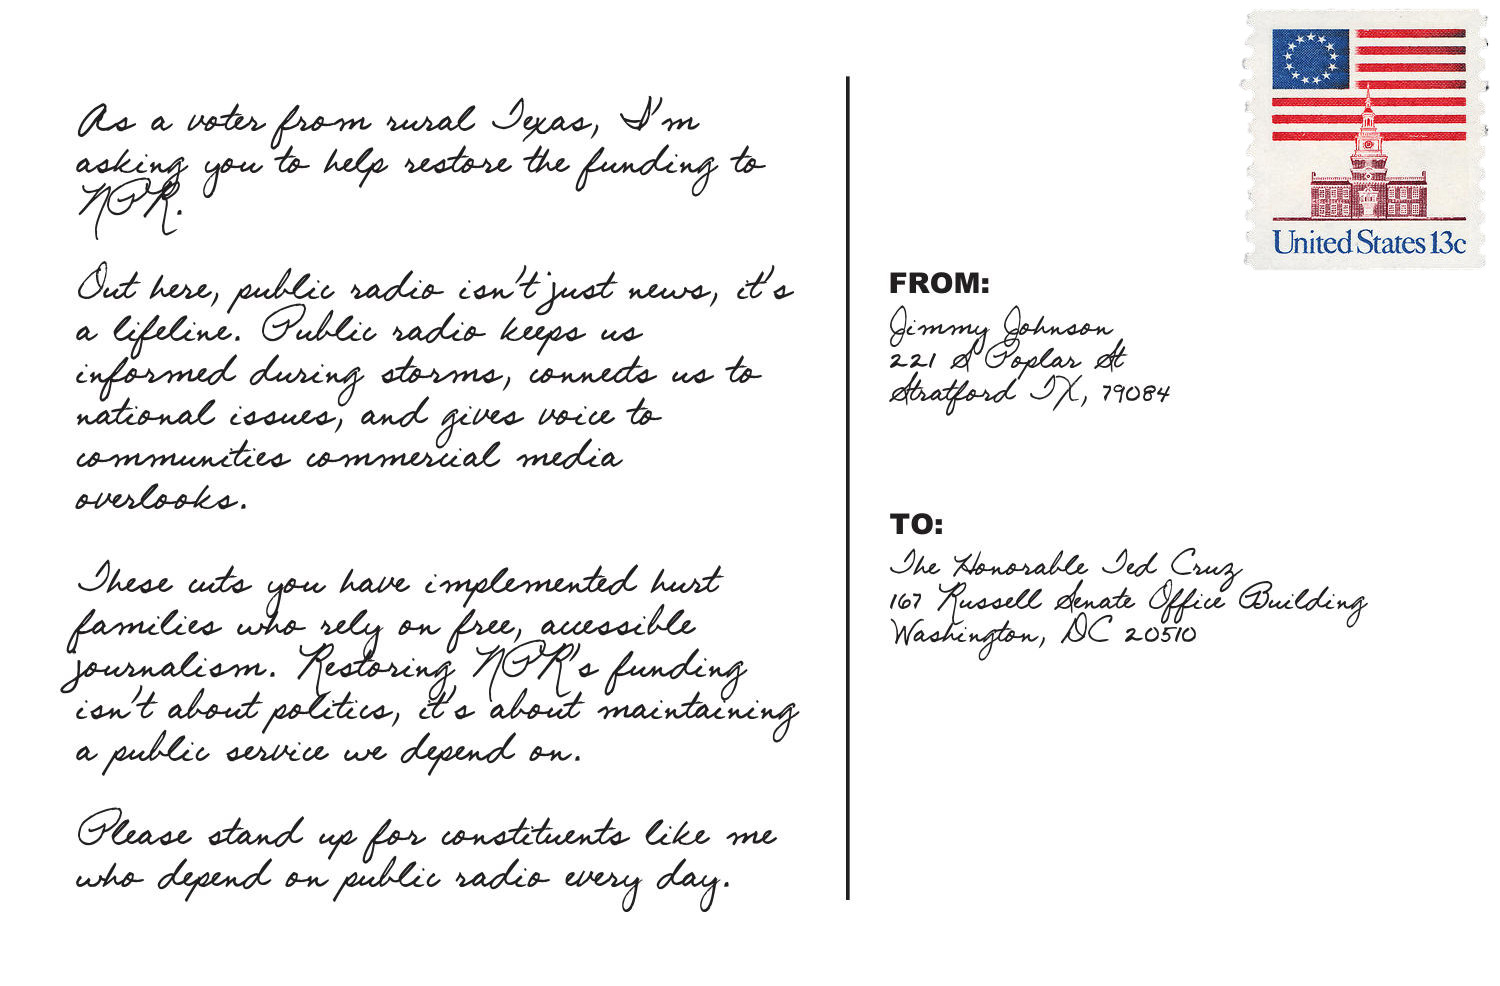 As a voter from rural Texas, I'm
asking you to help restore the funding to
NPR.
Out here, public radio isn't just news, it's
a lifeline. Public radio keeps us
informed during storms, connects us to
national issues, and gives voice to
communities commercial media
overlooks.
These cuts you have implemented hurt
families who rely on free, accessible
journalism. Restoring NPR's funding
isn't about politics, it's about maintaining
a public service we depend on.
Please stand up for constituents like me
who depend on public radio every day.
United States 13c
FROM:
Jimmy Johnson
221 S Poplar St
Stratford TX, 79084
TO:
The Honorable Ted Cruz
167 Russell Senate Office Building
Washington, DC 20510